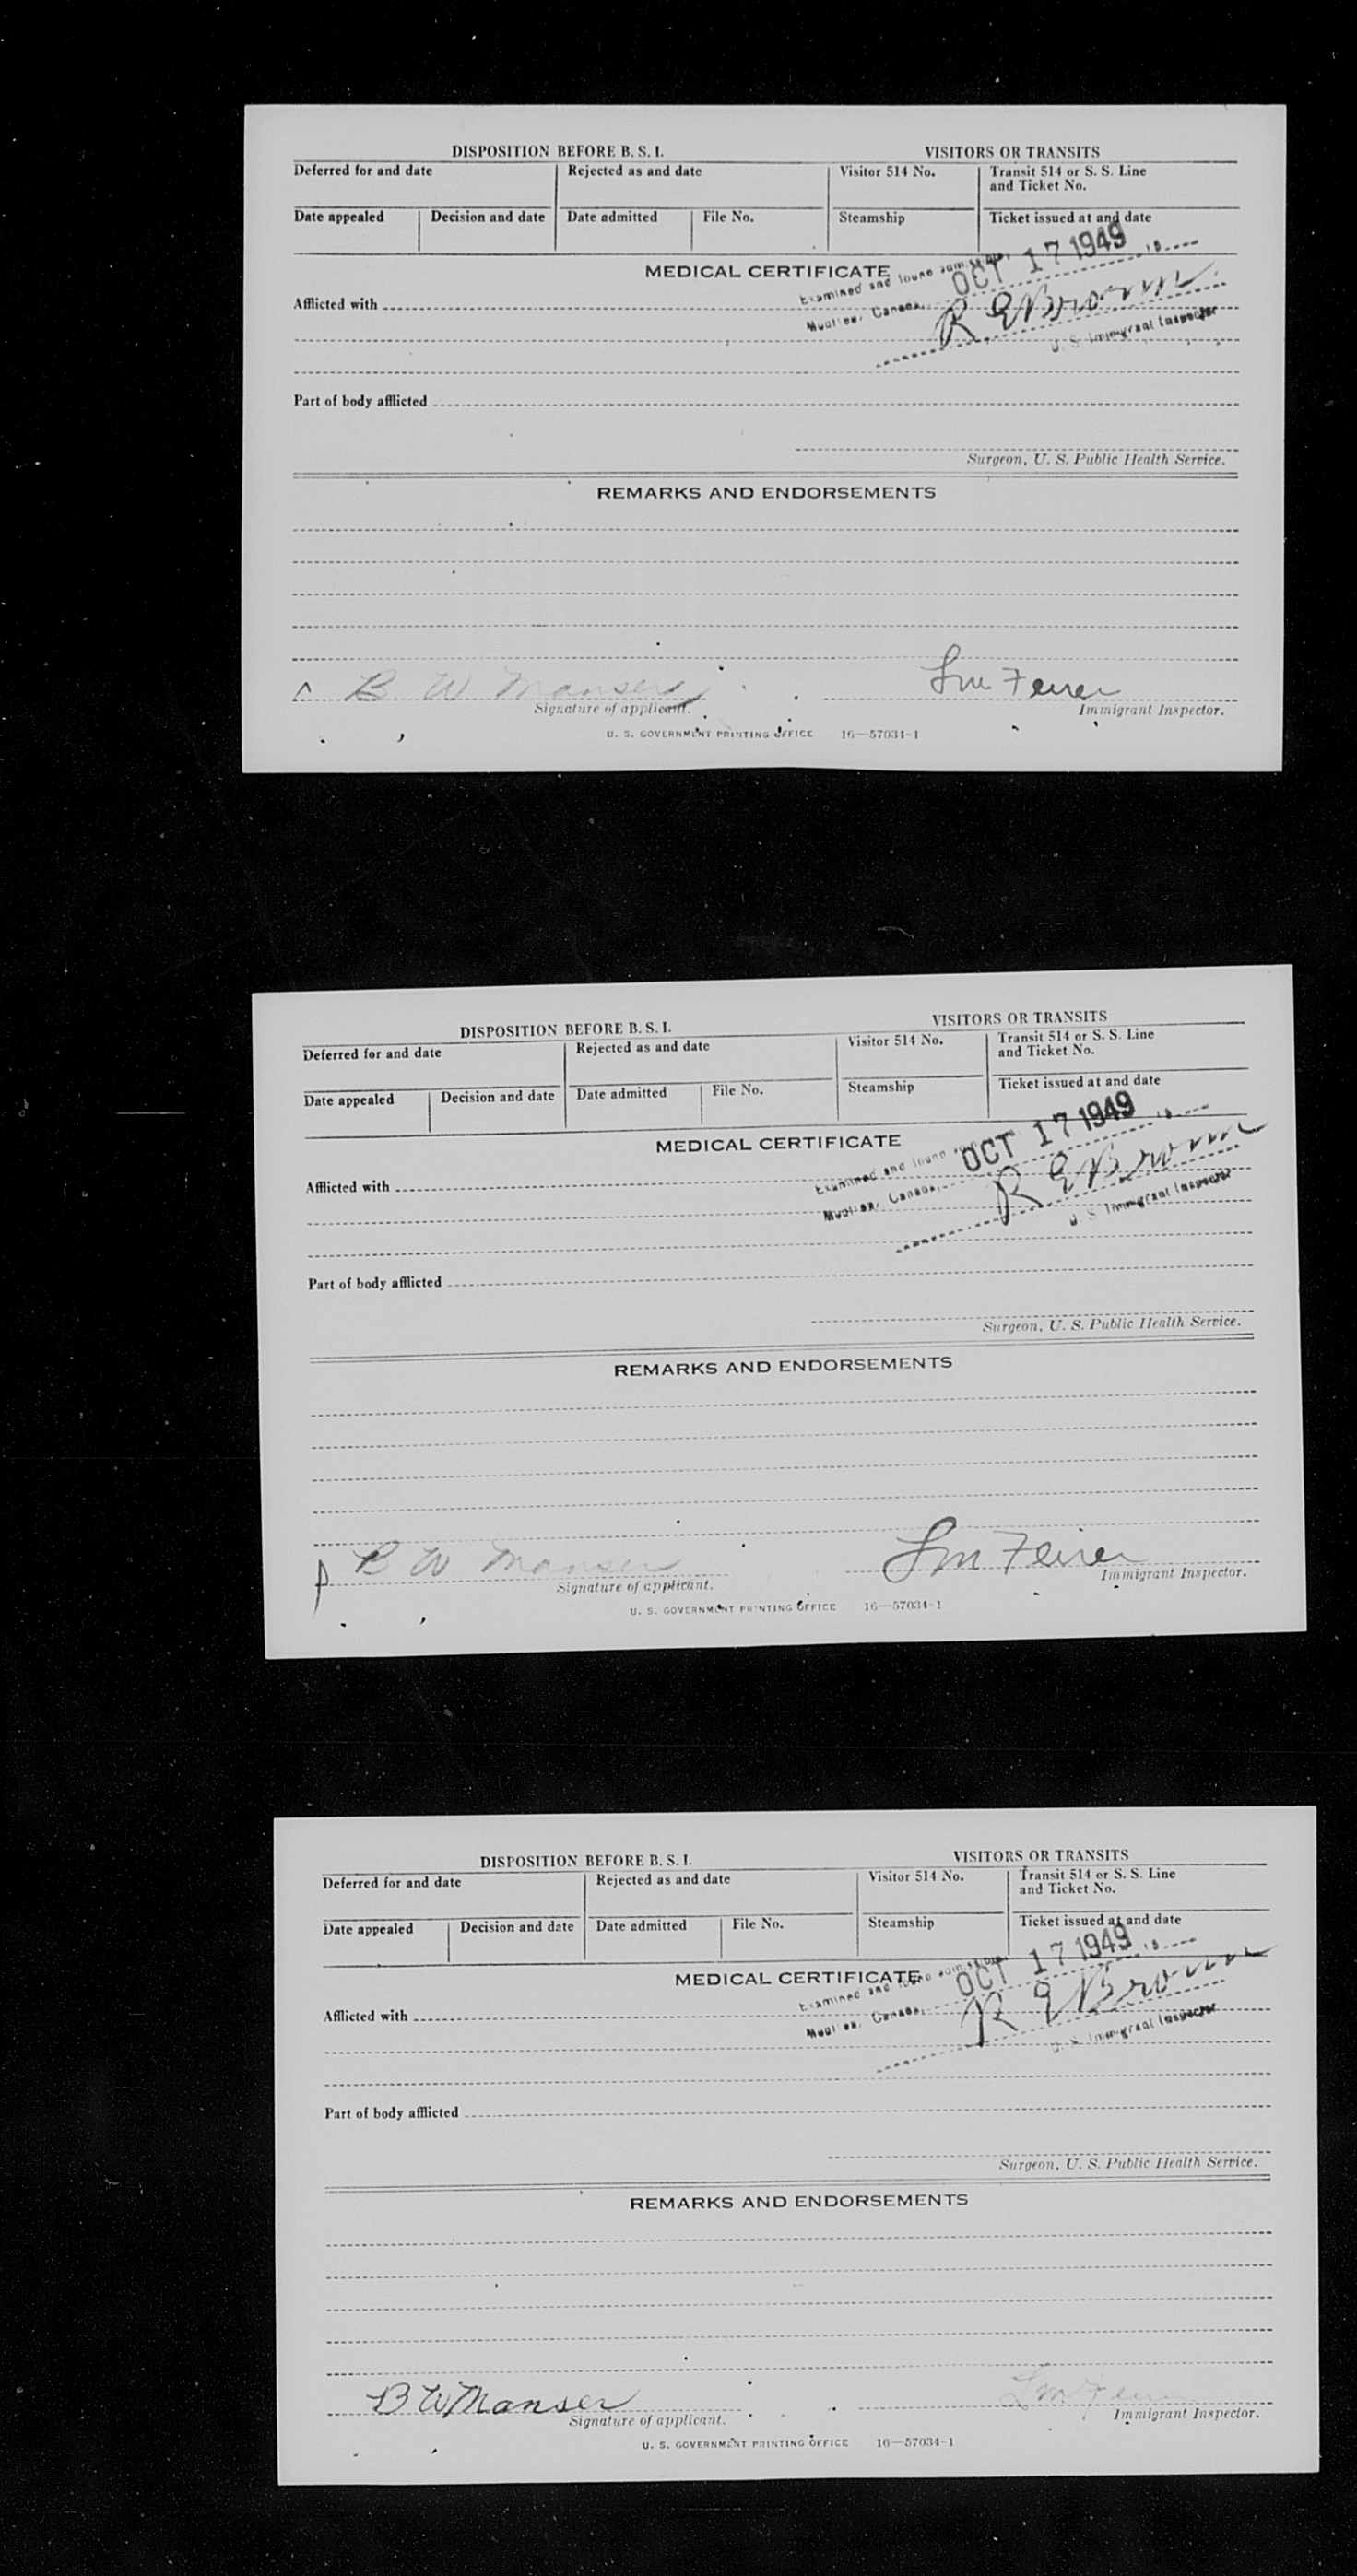 DISPOSITION BEFORE B. S. I. VISITORS OR TRANSITS
Deferred for and date Rejected as and date Visitor 514 No. Transit 514 or S. S. Line
and Ticket No.
Date appealed Decision and date Date admitted File No. Steamship Ticket issued at and date
OCT 17 1949 19
MEDICAL CERTIFICATE Examined and found
Afflicted with Canada, R E Brown
U. S. Immigrant Inspector
Part of body afflicted
Surgeon, U. S. Public Health Service.
REMARKS AND ENDORSEMENTS
B W Manser
Signature of applicant. Immigrant Inspector.
U. S. GOVERNMENT PRINTING OFFICE 16—57034-1
DISPOSITION BEFORE B. S. I. VISITORS OR TRANSITS
Deferred for and date Rejected as and date Visitor 514 No. Transit 514 or S. S. Line
and Ticket No.
Date appealed Decision and date Date admitted File No. Steamship Ticket issued at and date
OCT 17 1949 19
MEDICAL CERTIFICATE Examined and found
Afflicted with Canada, R E Brown
U. S. Immigrant Inspector
Part of body afflicted
Surgeon, U. S. Public Health Service.
REMARKS AND ENDORSEMENTS
B W Manser
Signature of applicant. Immigrant Inspector.
U. S. GOVERNMENT PRINTING OFFICE 16—57034-1
DISPOSITION BEFORE B. S. I. VISITORS OR TRANSITS
Deferred for and date Rejected as and date Visitor 514 No. Transit 514 or S. S. Line
and Ticket No.
Date appealed Decision and date Date admitted File No. Steamship Ticket issued at and date
OCT 17 1949 19
MEDICAL CERTIFICATE Examined and found
Afflicted with Canada, R E Brown
U. S. Immigrant Inspector
Part of body afflicted
Surgeon, U. S. Public Health Service.
REMARKS AND ENDORSEMENTS
B W Manser
Signature of applicant. Immigrant Inspector.
U. S. GOVERNMENT PRINTING OFFICE 16—57034-1